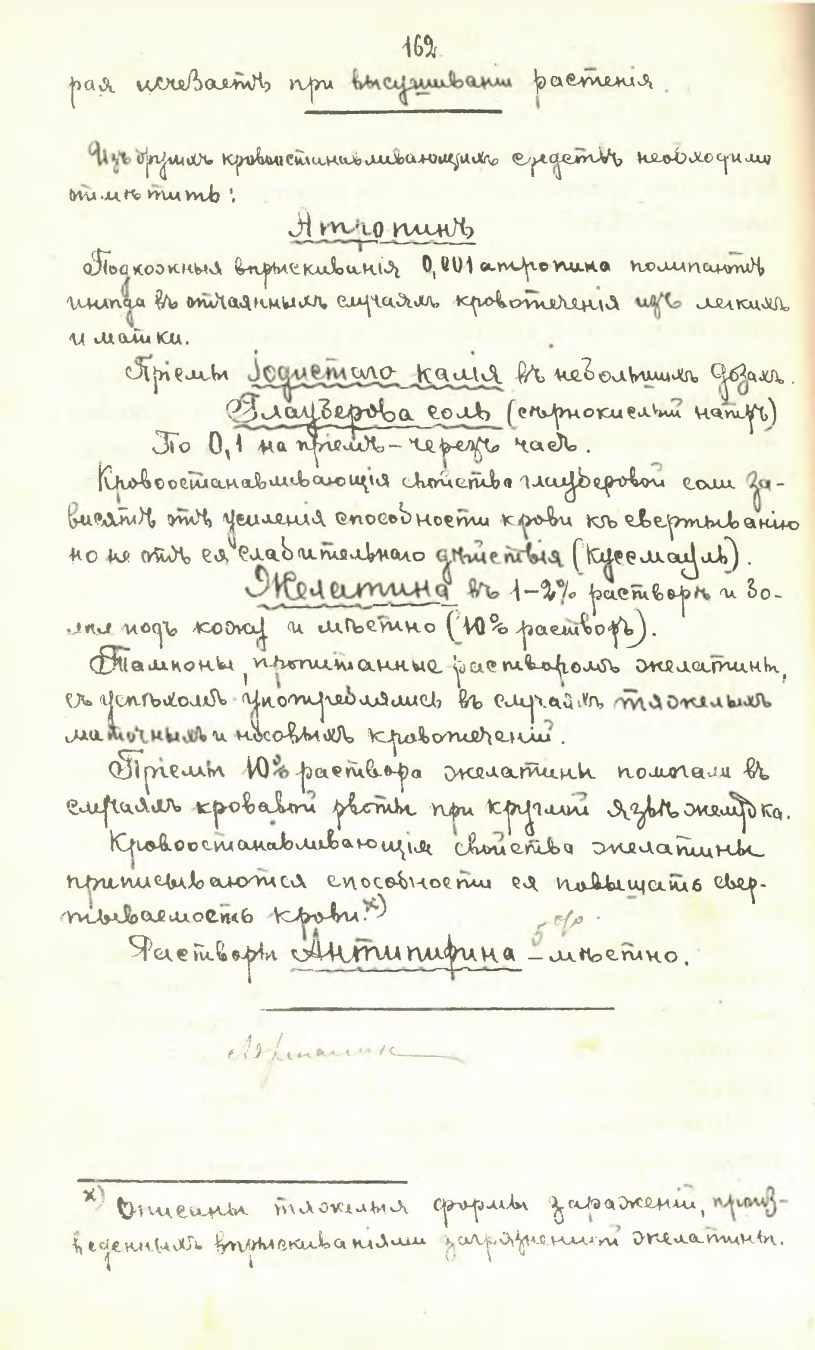 162
рая исчезаетъ при высушиваніи растенія.
Изъ другихъ кровоостанавливающихъ средствъ необходимо
отмѣтить:
Атропинъ
Подкожныя впрыскиванія 0,001 атропина помогаютъ
иногда въ отчаянныхъ случаяхъ кровотеченія изъ легкихъ
и матки.
Пріемы іодистаго калія въ небольшихъ дозахъ.
Глауберова соль (сѣрнокислый натръ)
По 0,1 на пріемъ – черезъ часъ.
Кровоостанавливающія свойства глауберовой соли за-
висятъ отъ усиленія способности крови къ свертыванію
но не отъ ея слабительнаго дѣйствія (Куссмауль).
Желатина въ 1–2% растворѣ и 3о-
подъ кожу и мѣстно (10% растворъ).
Тампоны, пропитанные растворомъ желатины,
съ успѣхомъ употреблялись въ случаяхъ тяжелыхъ
маточныхъ и носовыхъ кровотеченій.
Пріемы 10% раствора желатины помогали въ
случаяхъ кровавой рвоты при круглой язвѣ желудка.
Кровоостанавливающія свойства желатины
приписываются способности ея повышать свер-
тываемость крови.х)
Растворы Антипирина – 5% мѣстно.
х) Описаны тяжелыя формы зараженій, произ-
веденныхъ впрыскиваніями загрязненной желатины.